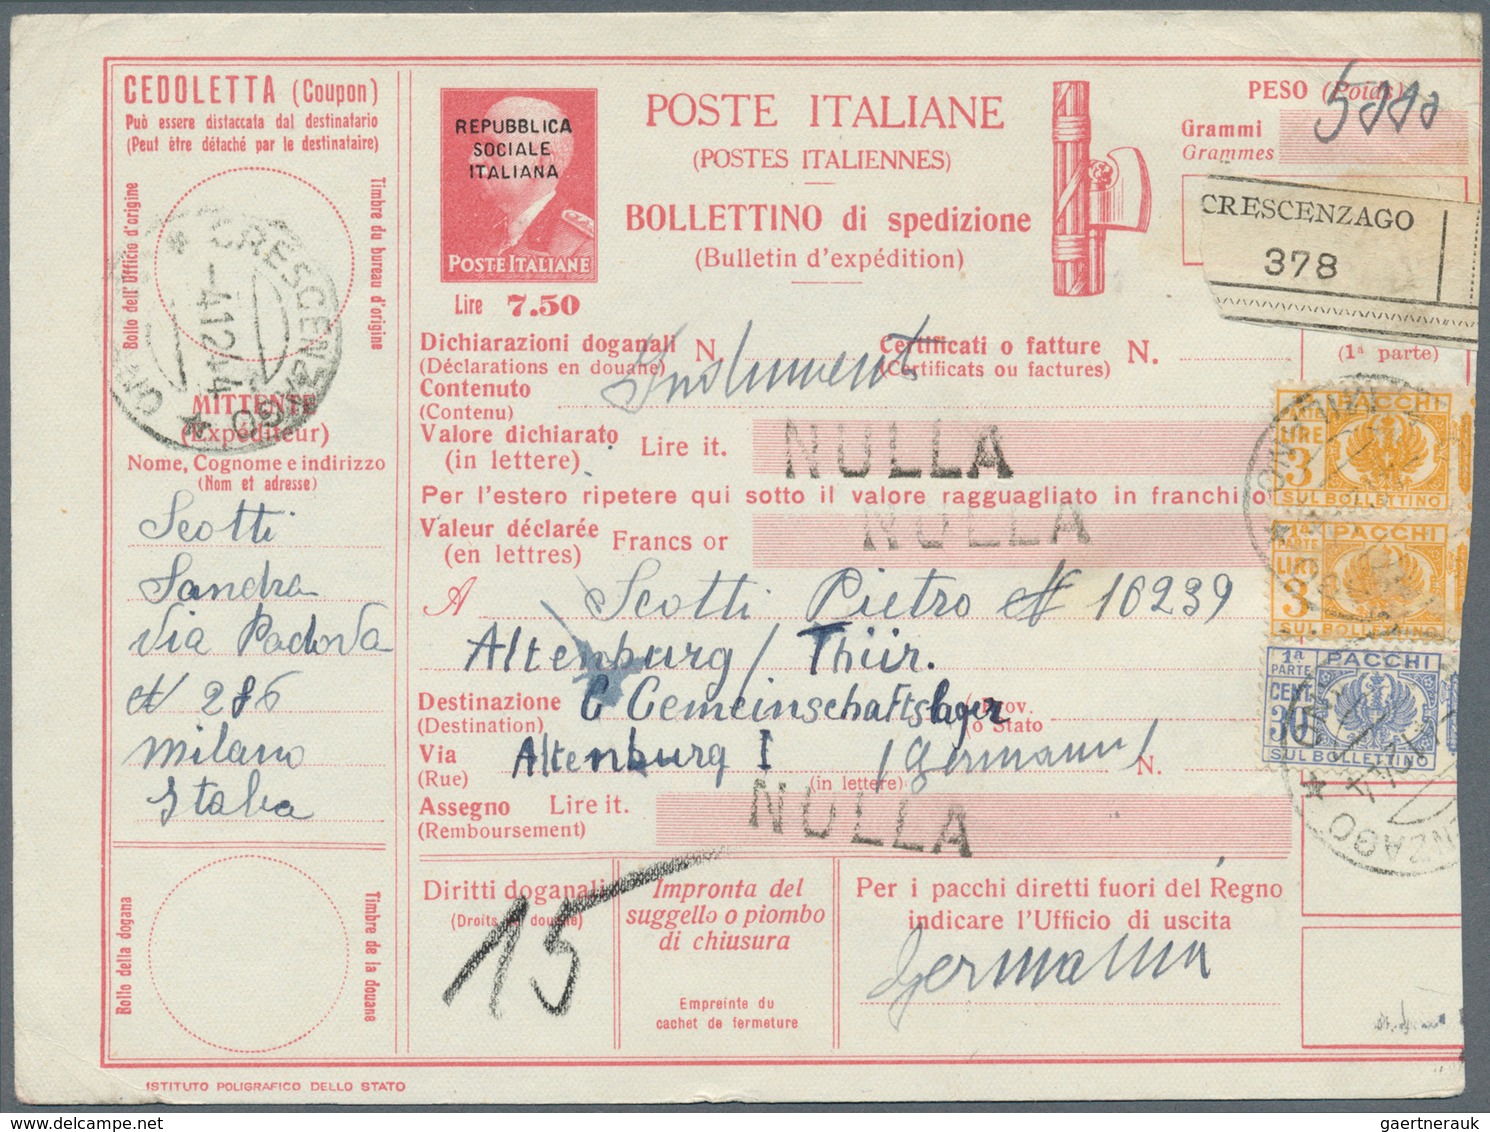 CEDOLETTA (Coupon)
Può essere distaccata dal destinatario
(Peut être détaché par le destinataire)
Bollo dell'Ufficio d'origine
Timbre du bureau d'origine
CRESCENZAGO
MITTENTE
(Expéditeur)
Nome, Cognome e indirizzo
(Nom et adresse)
Scotti
Sandra
Via Padova
N 286
Milano
Italia
Bollo della dogana
Timbre de la douane
ISTITUTO POLIGRAFICO DELLO STATO
REPUBBLICA
SOCIALE
ITALIANA
POSTE ITALIANE
Lire 7.50
POSTE ITALIANE
(POSTES ITALIENNES)
BOLLETTINO di spedizione
(Bulletin d'expédition)
PESO (Poids)
Grammi
Grammes
5000
CRESCENZAGO
378
(1ª parte)
Dichiarazioni doganali N.
(Déclarations en douane)
Certificati o fatture N.
(Certificats ou factures)
Contenuto
(Contenu)
Indument
Valore dichiarato
(in lettere)
Lire it.
NULLA
Per l'estero ripetere qui sotto il valore ragguagliato in franchi o
Valeur déclarée
(en lettres)
Francs or
NULLA
A Scotti Pietro N 10239
Altenburg / Thür.
Destinazione
(Destination)
C Gemeinschaftslager
Prov.
o Stato
Via
(Rue)
Altenburg I (Germania)
N.
(in lettere)
Assegno
(Remboursement)
Lire it.
NULLA
Diritti doganali
(Droits de douane)
15
Impronta del
suggello o piombo
di chiusura
Empreinte du
cachet de fermeture
Per i pacchi diretti fuori del Regno
indicare l'Ufficio di uscita
Germania
PACCHI
PARTE
LIRE
3
SUL BOLLETTINO
1ª PACCHI
PARTE
LIRE
3
SUL BOLLETTINO
1ª PACCHI
PARTE
CENT.
30
SUL BOLLETTINO
gaertnerauk